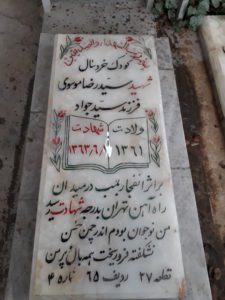 کودک خردسال
شهید سیدرضا موسوی
فرزند سیدجواد
ولادت شهادت
۱۳۶۱ ۱۳۶۳/۶/۱
بر اثر انفجار بمب در میدان
راه آهن تهران بدرجه شهادت رسید
من نوجوان بودم اندر چمن حسن
نشکفته فرو ریخت همه بال و پر من
قطعه ۲۷ ردیف ۶۵ شماره ۴